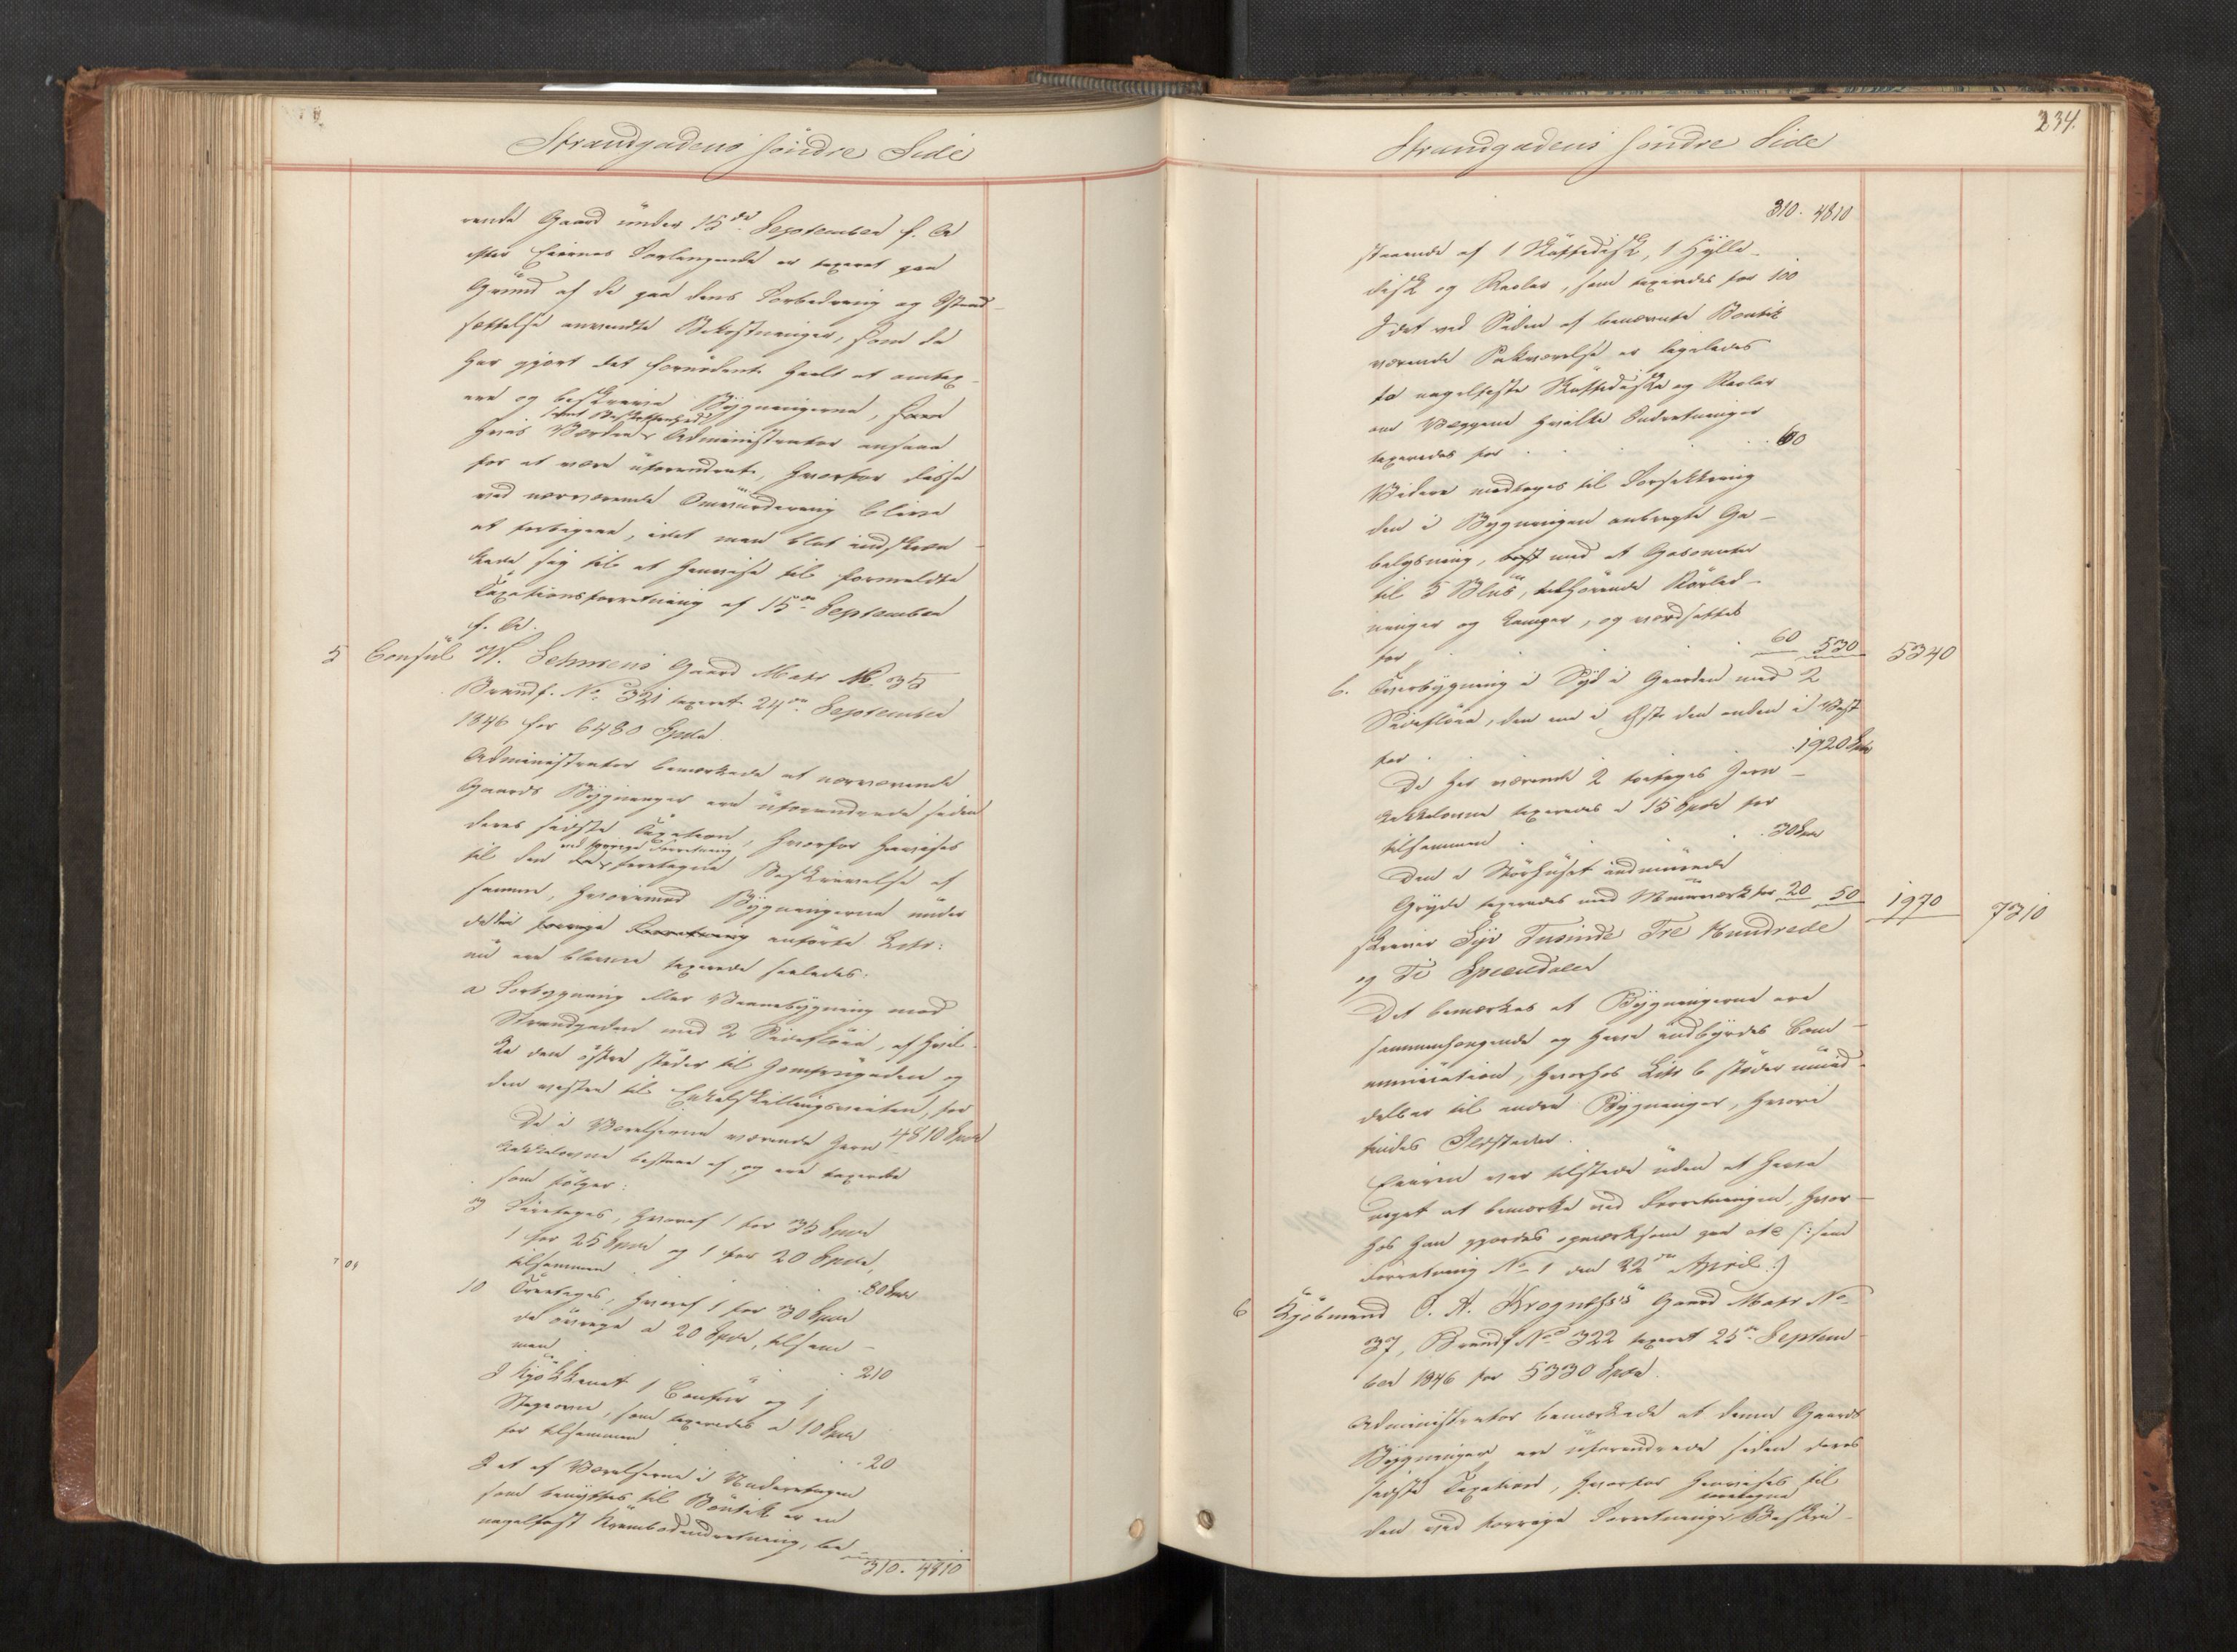 Strandgadens söndre Side
rende Gaard under 15de September f. A
efter Eierens Forlangende er taxeret paa
Grund af de paa dens Forbedring og Istand-
sættelse anvendte Bekostninger, som da
har gjort det fornödent heelt at omtax-
ere og beskrive Bygningerne,
samt Beskaffenhed
hvis Værdier Administrator ansaae
for at være uforandret, hvorfor disse
ved nærværende Omvurdering bleve
at forbigaae, idet man blot indskræn-
kede sig til at henvise til formeldte
Taxationsforretning af 15de September
f. A.
5 Consül H. Jehmsens Gaard Matr No 35
Brandf. No 321 taxeret 24de September
1846 for 6480 Spd
Administrator bemærkede at nærværende
Gaards Bygninger ere uforandrede siden
deres sidste Taxation, hvorfor henvises
ved forrige Forretning
til den foretagne Beskrivelse af
samme, hvorimod Bygningerne under
de forrige Forretning anförte Litr:
nu ere blevne taxerede saaledes:
a Forbygning eller Vaanebygning mod
Strandgaden med 2 Sideflöie, af hvil-
ke den östre stöder til Jomfrugaden og
den vestre til Enkeltskillingsveiten, for
4810 Spd
De i Værelserne værende Jern-
kakkelovne bestaae af, og ere taxerede
som fölger:
3 Fireetages, hvoraf 1 for 35 Spd
1 for 25 Spd og 1 for 20 Spd,
tilsammen . . 80 Spd
10 Treetages, hvoraf 1 for 30 Spd
de övrige a 20 Spd, tilsam-
men . . 210
I Kjökkenet 1 Comfur og 1
Stegeovn, som taxeredes a 10 Spd
for tilsammen . . 20
I et af Værelserne i Underetagen
som benyttes til Boutik er en
nagelfast Krambodindretning, be-
310. 4810
Strandgadens söndre Side
234.
310. 4810
staaende af 1 Skuffedisk, 1 Hylle-
disk og Reoler, som taxeredes for 100
I det ved Siden af benævnte Boutik
værende Pakværelse er ligeledes
to nagelfaste Skuffediske og Reoler
om Væggene hvilke Indretninger
taxeredes for . . 60
Videre medtages til Forsikkring
den i Bygningen anbragte Ga-
belysning, med et Gasometer
til 5 Blus, tilhörende Rörled-
ninger og Lamper, og værdsattes
for . . 60 530 5340
b. Tverbygning i Syd i Gaarden med 2
Sideflöie, den ene i Öst den anden i Vest
for . . 1920 Spd
De her værende 2 toetages Jern-
kakkelovne taxeredes a 15 Spd for
tilsammen . . 30 Spd
Den i Störhuset indmurede
Gryde taxeredes med Muurværk for 20 50 1970 7310
skriver Syv Tusinde Tre Hundrede
og Ti Speciedaler
Det bemærkes at Bygningerne ere
sammenhængende og have indbyrdes Com-
munication, hvorhos Litr b stöder umid-
delbar til andre Bygninger, hvori
findes Ildsteder.
Eieren var tilstede uden at have
noget at bemærke ved Forretningen, hvor-
hos han gjordes opmærksom paa etc (: som
Forretning No 1 den 22de April :)
6 Kjöbmand O. A. Krogness's Gaard Matr No
37, Brandf No 322 taxeret 25de Septem-
ber 1846 for 5330 Spd.
Administrator bemærkede at denne Gaards
Bygninger ere uforandrede siden deres
sidste Taxation, hvorfor henvises til
foretagne
den ved forrige Forretning Beskri-